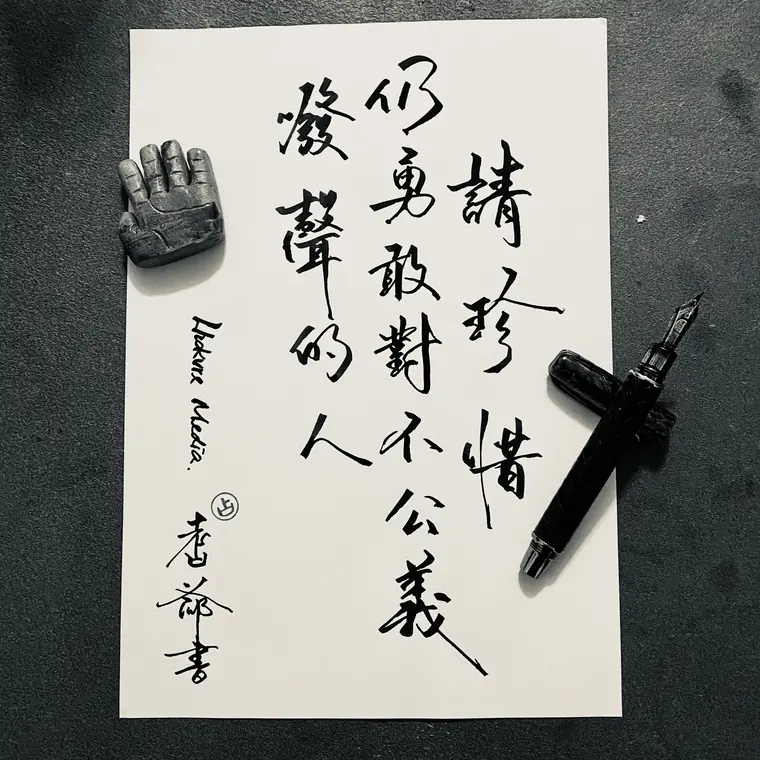 請珍惜
仍勇敢對不公義
發聲的人
Media.
書